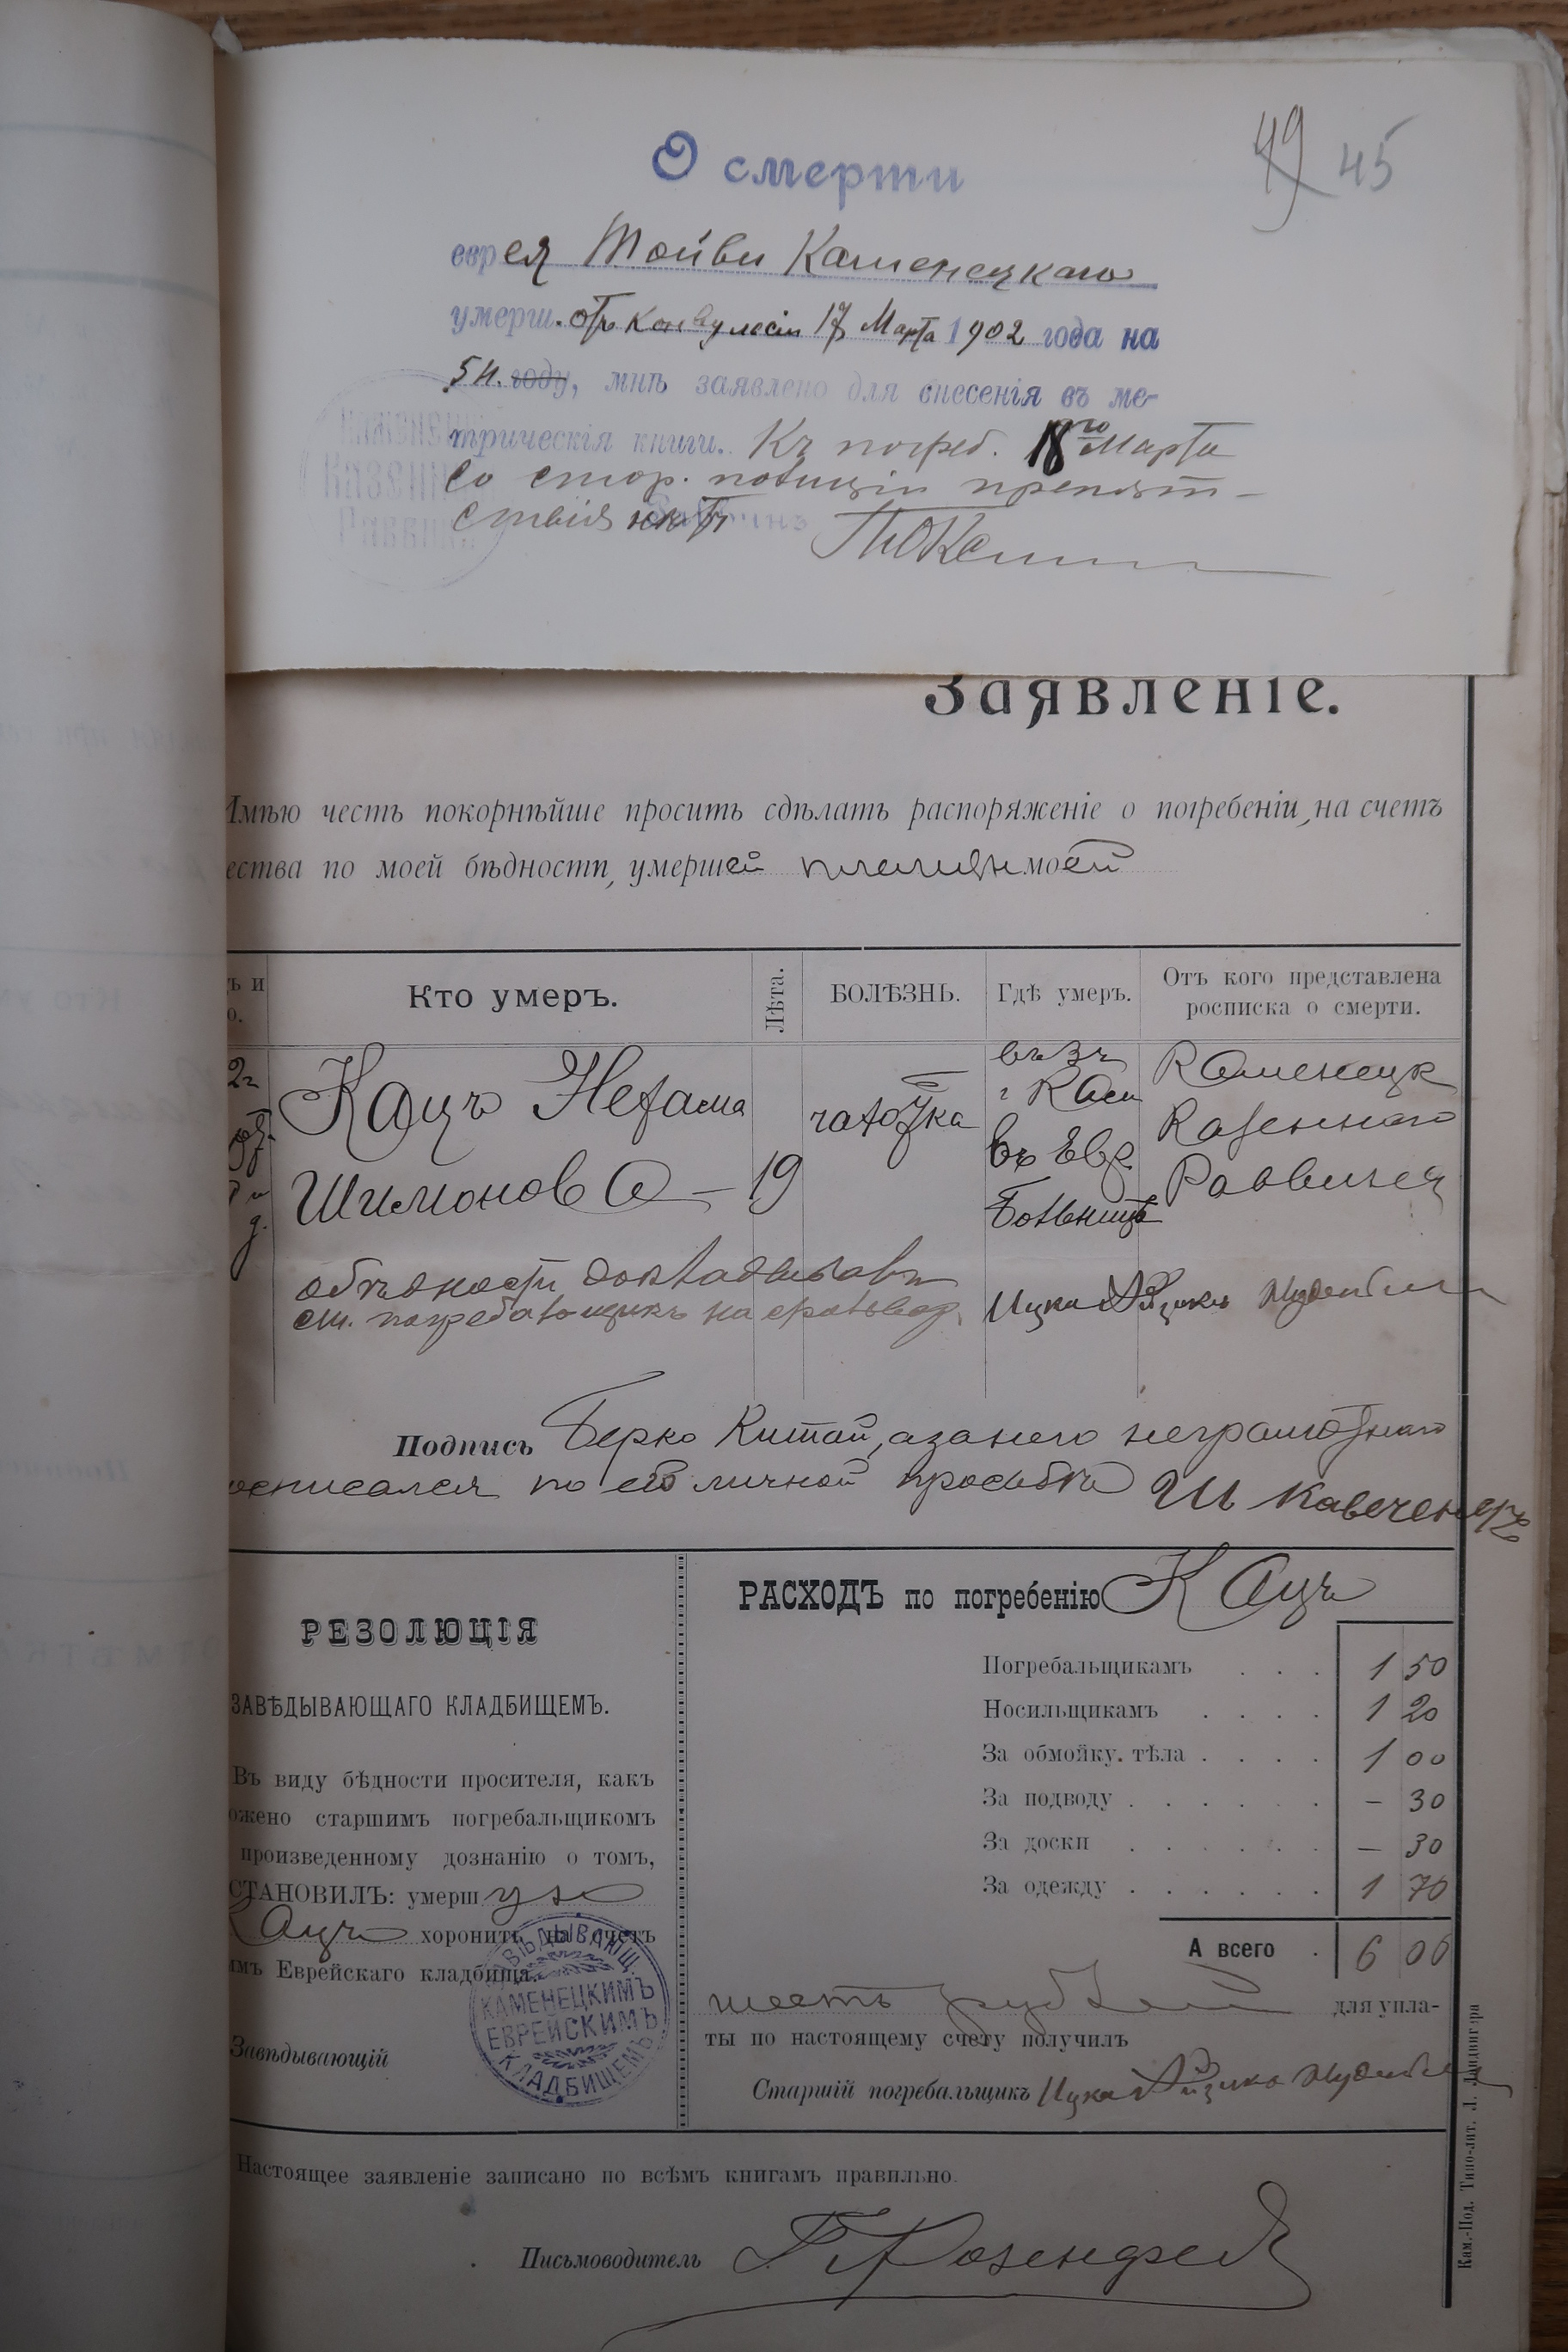 49 45
О смерти
еврея Тойви Каменецкаго
умерш. отъ конвульсіи 17 Марта 1902 года на
5 н. году, мнѣ заявлено для внесенія въ ме-
трическія книги. Къ погреб. 18го Марта
со стор. полиціи препят-
ствія нѣтъ
Каменец
Казенный
Раввинъ
Заявленіе.
Имѣю честь покорнѣйше просить сдѣлать распоряженіе о погребеніи, на счетъ
ества по моей бѣдности, умершей племян моей
ъ и
о.
Кто умеръ.
Лѣта.
БОЛѢЗНЬ.
Гдѣ умеръ.
Отъ кого представлена
росписка о смерти.
2г
Кацъ Нехама
Шимонова — 19
чахотка
г Кам
въ Евр.
Больницѣ
Каменецк
Казеннаго
Раввина
о бѣдности докладывалъ
ст. погребальщикъ на кладб.
Ицко Айзикъ
Подпись Берко Китай, а за него неграмотнаго
осписался по его личной просьбѣ Ш Кавечен
РЕЗОЛЮЦІЯ
ЗАВѢДЫВАЮЩАГО КЛАДБИЩЕМЪ.
Въ виду бѣдности просителя, какъ
ожено старшимъ погребальщикомъ
произведенному дознанію о томъ,
СТАНОВИЛЪ: умершую
Кацъ хоронить на счетъ
имъ Еврейскаго кладбища.
Завѣдывающій
ЗАВѢДЫВАЮЩ.
КАМЕНЕЦКИМЪ
ЕВРЕЙСКИМЪ
КЛАДБИЩЕМЪ
РАСХОДЪ по погребенію Кацъ
Погребальщикамъ . . . 1 50
Носильщикамъ . . . . 1 20
За обмойку. тѣла . . . . 1 00
За подводу . . . . . . — 30
За доски . . . . . . — 30
За одежду . . . . . . 1 70
А всего . 6 00
шесть рублей для упла-
ты по настоящему счету получилъ
Старшій погребальщикъ Ицко Айзикъ
Настоящее заявленіе записано по всѣмъ книгамъ правильно.
Письмоводитель Розенфельд
Кам.-Под. Типо-лит. Л.